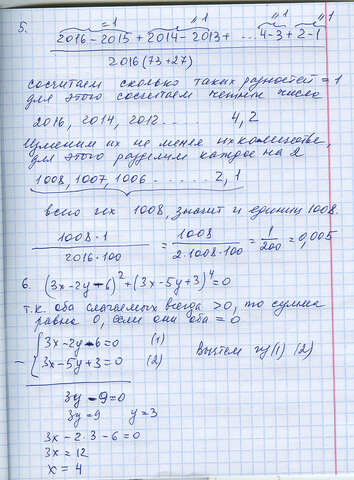 5. 2016-2015 + 2014-2013 + ... 4-3 + 2-1
=1 "1 "1 "1
2016(73+27)
сосчитаем сколько таких разностей = 1
для этого сосчитаем четные числа
2016, 2014, 2012 ..... 4, 2
Изменим их не меняя их количества,
для этого разделим каждое на 2
1008, 1007, 1006 ...... 2, 1
всего их 1008, значит и единиц 1008.
1008·1 / 2016·100 = 1008 / 2·1008·100 = 1/200 = 0,005
6. (3x-2y-6)² + (3x-5y+3)⁴ = 0
т.к. оба слагаемых всегда >0, то сумма
равна 0, если они оба = 0
{3x-2y-6=0 (1)
- {3x-5y+3=0 (2) Вычтем из (1) (2)
3y-9=0
3y=9 y=3
3x-2·3-6=0
3x=12
x=4